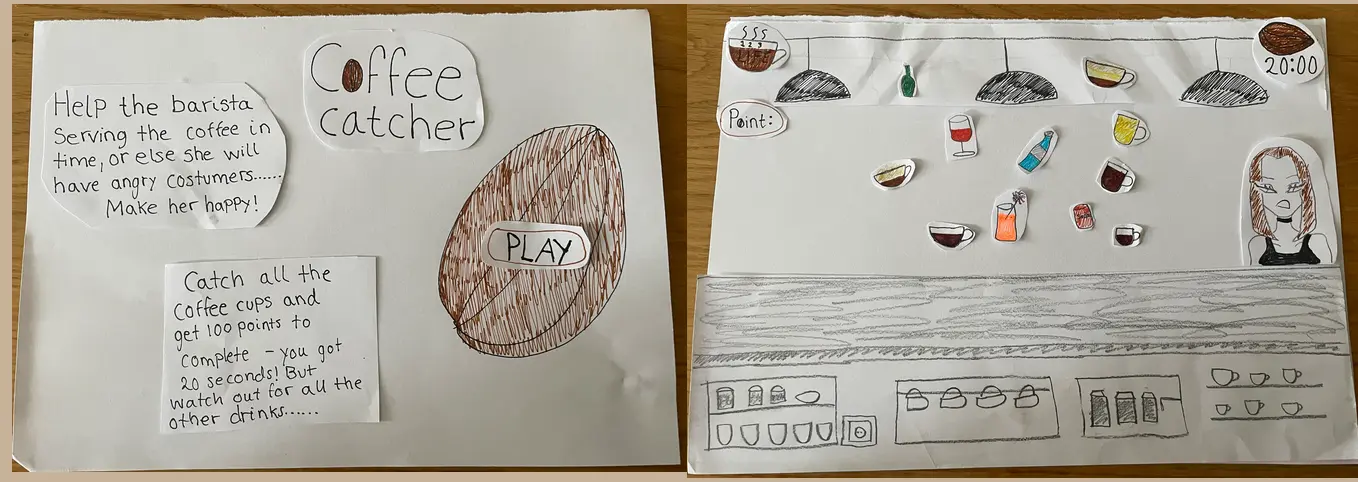 Coffee
catcher
Help the barista
Serving the coffee in
time, or else she will
have angry costumers......
Make her happy!
PLAY
Catch all the
Coffee cups and
get 100 points to
complete - you got
20 seconds! But
watch out for all the
other drinks......
20:00
Point: